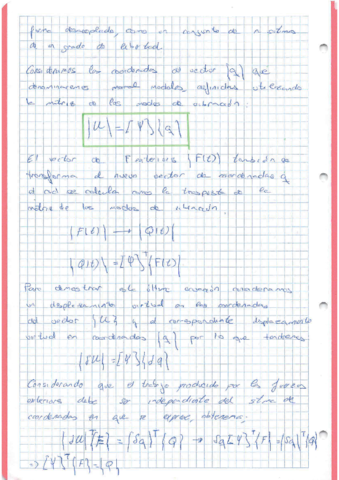 forma desacoplada, como un conjunto de n sistemas
de un grado de libertad.
Consideremos las coordenadas del vector {q} que
denominaremos normal modales, definidas utilizando
la matriz de los modos de vibración:
{U} = [Ψ]{q}
El vector de F exteriores {F(t)} también se
transforma al nuevo vector de coordenadas q
el cual se calcula como la traspuesta de la
matriz de los modos de vibración.
{F(t)} → {Q(t)}
{Q(t)} = [Ψ]ᵀ{F(t)}
Para demostrar esta última expresión consideramos
un desplazamiento virtual en las coordenadas
del vector {U} y el correspondiente desplazamiento
virtual en coordenadas {q} por lo que tendremos
{δU} = [Ψ]{δq}
Considerando que el trabajo producido por las fuerzas
exteriores debe ser independiente del sistema de
coordenadas en que se exprese, obtenemos:
{δU}ᵀ{F} = {δq}ᵀ{Q} → δq[Ψ]ᵀ{F} = {δq}ᵀ{Q}
⇒ [Ψ]ᵀ{F} = {Q}